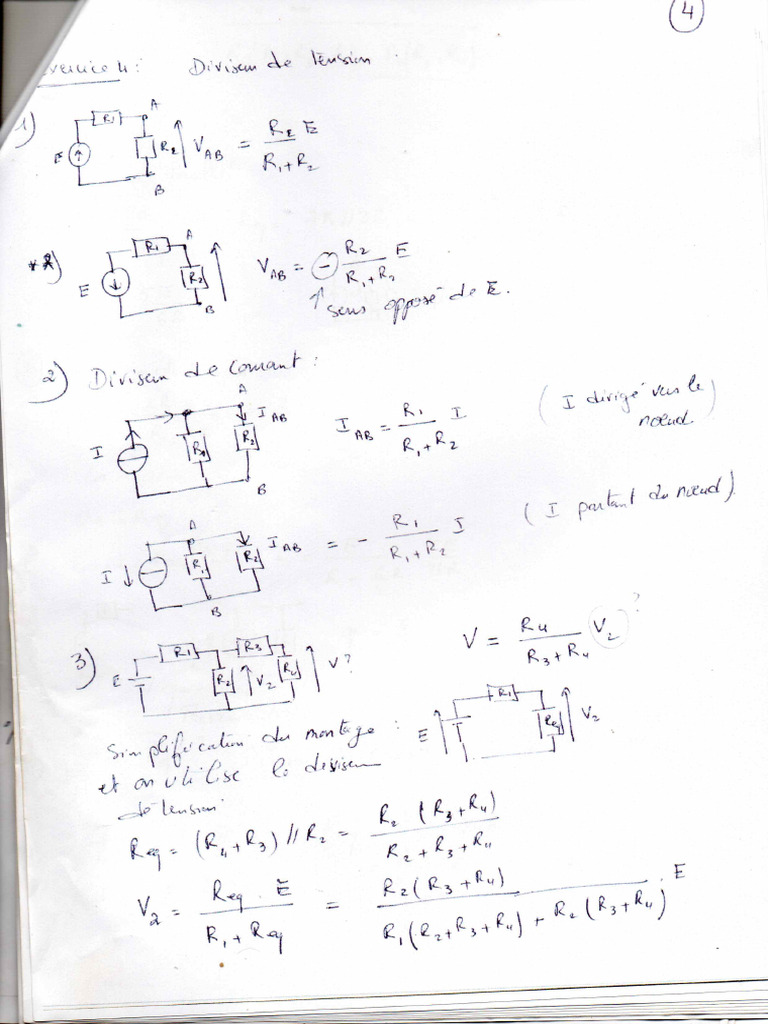 4
Exercice 4 : Diviseur de tension
1) E R1 A R2 B V_AB = R2 E / (R1 + R2)
2) E R1 A R2 B V_AB = - R2 / (R1 + R2) E
↑ sens opposé de E.
2) Diviseur de courant :
I A R1 R2 I_AB B I_AB = R1 / (R1 + R2) I ( I dirigé vers le nœud )
I A R1 R2 B I_AB = - R1 / (R1 + R2) I ( I partant du nœud ).
3) E R1 R3 R2 V2 R4 V? V = R4 / (R3 + R4) V2 ?
Simplification du montage : E R1 Req V2
et on utilise le diviseur
de tension
Req = (R4 + R3) // R2 = R2 (R3 + R4) / (R2 + R3 + R4)
V2 = Req . E / (R1 + Req) = R2 (R3 + R4) / (R1 (R2 + R3 + R4) + R2 (R3 + R4)) . E